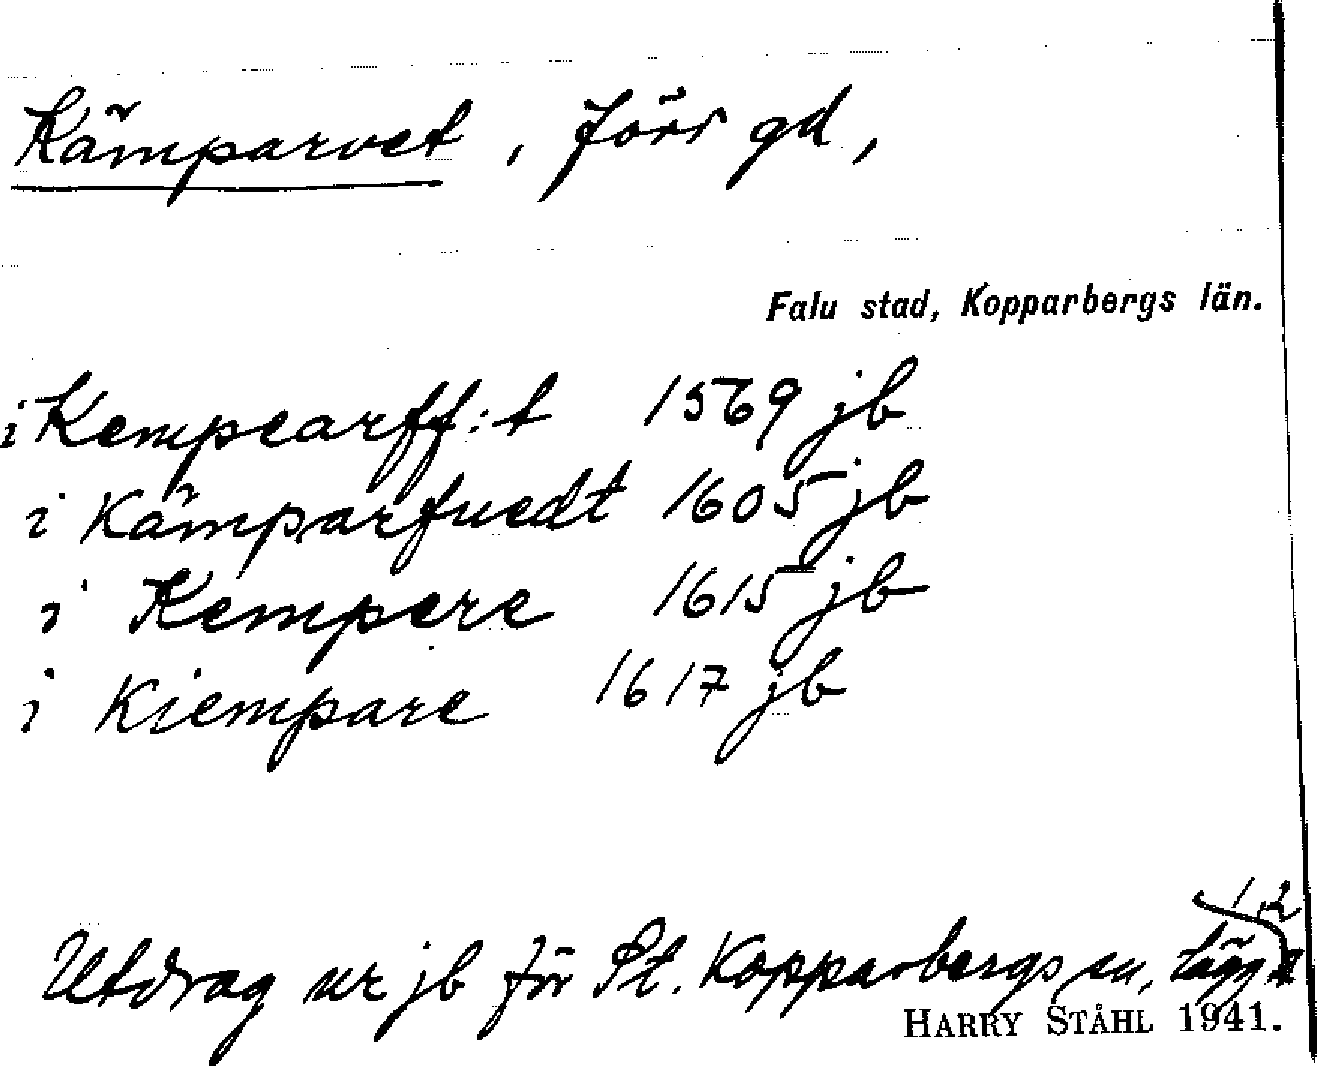 Kämparvet, förr gd,
Falu stad, Kopparbergs län.
i Kempearff:t 1569 jb
i Kämparfuedt 1605 jb
i Kempere 1615 jb
i Kiempare 1617 jb
1,2
Utdrag ur jb för St. Kopparbergs sn,
HARRY STÅHL 1941.